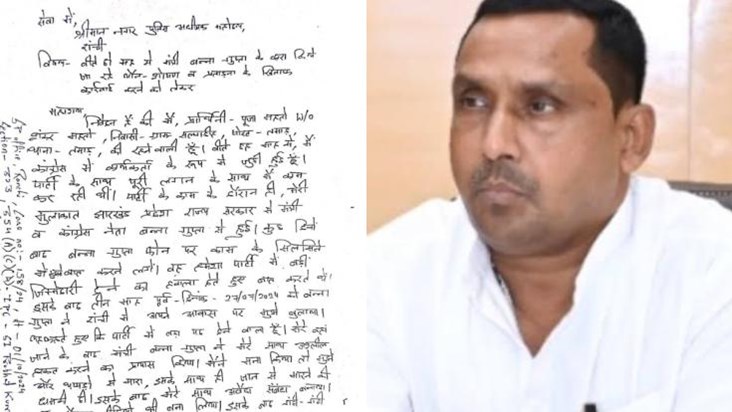 सेवा में,
श्रीमान नगर पुलिस अधीक्षक महोदय,
रांची
विषय- बीते दो साल से मंत्री बन्ना गुप्ता के द्वारा किये
जा रहे यौन-शोषण व प्रताड़ना के खिलाफ
कार्रवाई करने को लेकर
महाशय
निवेदन है की मैं, प्रार्थिनी- पूजा महतो W/O
शंकर महतो, निवासी- ग्राम पोस्ट- तमाड़,
थाना- तमाड़, की रहने वाली हूं। बीते साल से, मैं
कांग्रेस में कार्यकर्ता के रूप में जुड़ी हुई हूं।
पार्टी के साथ पूरी लगन के साथ मैं काम
कर रही थी। पार्टी के काम के दौरान ही, मेरी
मुलाकात झारखंड प्रदेश राज्य सरकार में मंत्री
व कांग्रेस नेता बन्ना गुप्ता से हुई। कुछ दिनों
बाद बन्ना गुप्ता फोन पर काम के सिलसिले
में करने लगे। वह हमेशा पार्टी में बड़ी
जिम्मेदारी देने का हवाला देते हुए बात करते थे।
इसके बाद तीन माह पूर्व- दिनांक- 27/07/2024 को बन्ना
गुप्ता ने रांची में अपने आवास पर मुझे बुलाया।
हुए कि पार्टी में बड़ा पद देने वाला हूं। मेरे वहां
जाने के बाद मंत्री बन्ना गुप्ता ने मेरे साथ अश्लील
हरकत करने का प्रयास किया। मैंने मना किया तो मुझे
और थप्पड़ों से मारा, इसके साथ ही जान से मारने की
धमकी दी। इसके बाद मेरे साथ अवैध संबंध बनाया।
भी बना लिया। इसके बाद कभी-कभी